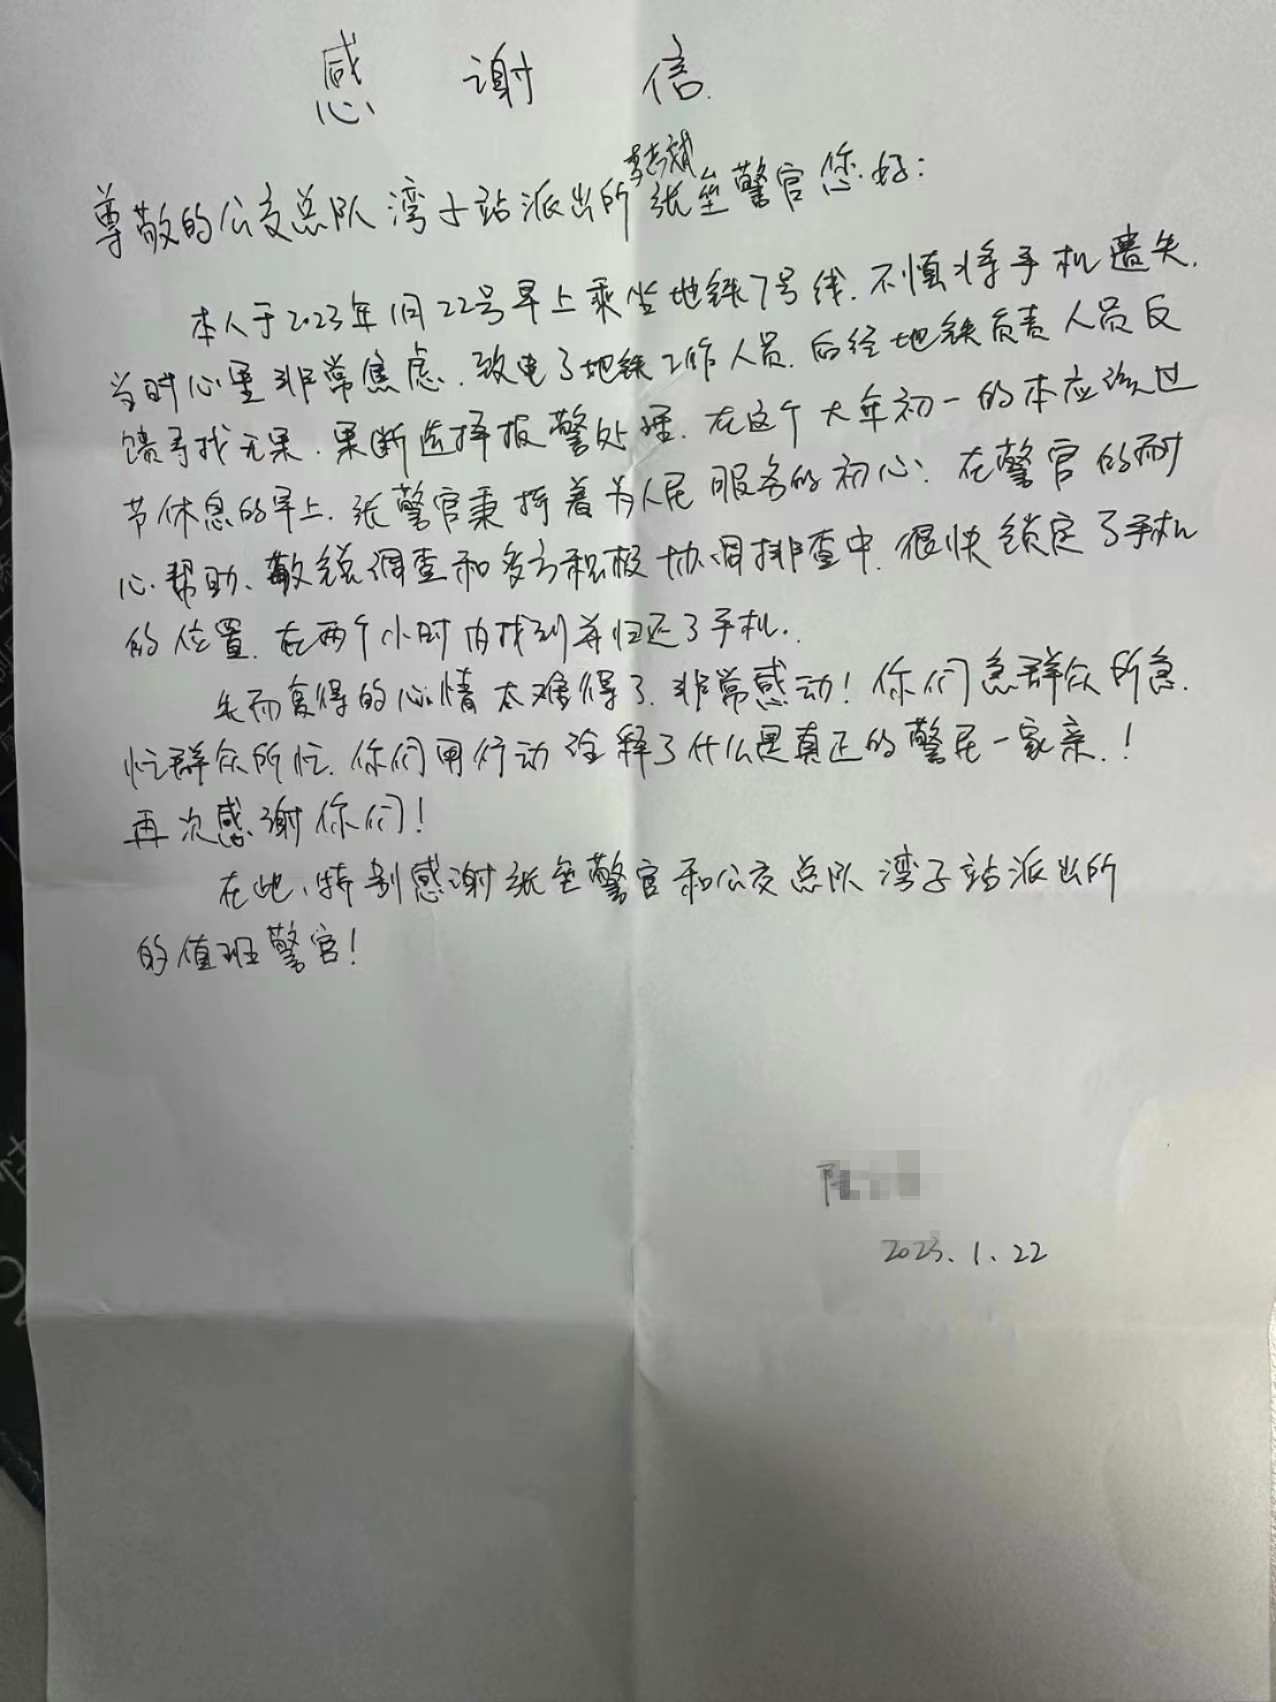 感谢信
李志斌
尊敬的公交总队湾子站派出所张垒警官您好:
本人于2023年1月22号早上乘坐地铁7号线.不慎将手机遗失.
当时心里非常焦虑.致电了地铁工作人员.后经地铁负责人员反
馈寻找无果.果断选择报警处理.在这个大年初一的本应该过
节休息的早上.张警官秉持着为人民服务的初心.在警官的耐
心帮助、敏锐调查和多方积极协调排查中.很快锁定了手机
的位置.在两个小时内找到并归还了手机.
失而复得的心情太难得了.非常感动!你们急群众所急.
忙群众所忙.你们用行动诠释了什么是真正的警民一家亲.!
再次感谢你们!
在此、特别感谢张垒警官和公交总队湾子站派出所
的值班警官!
2023.1.22